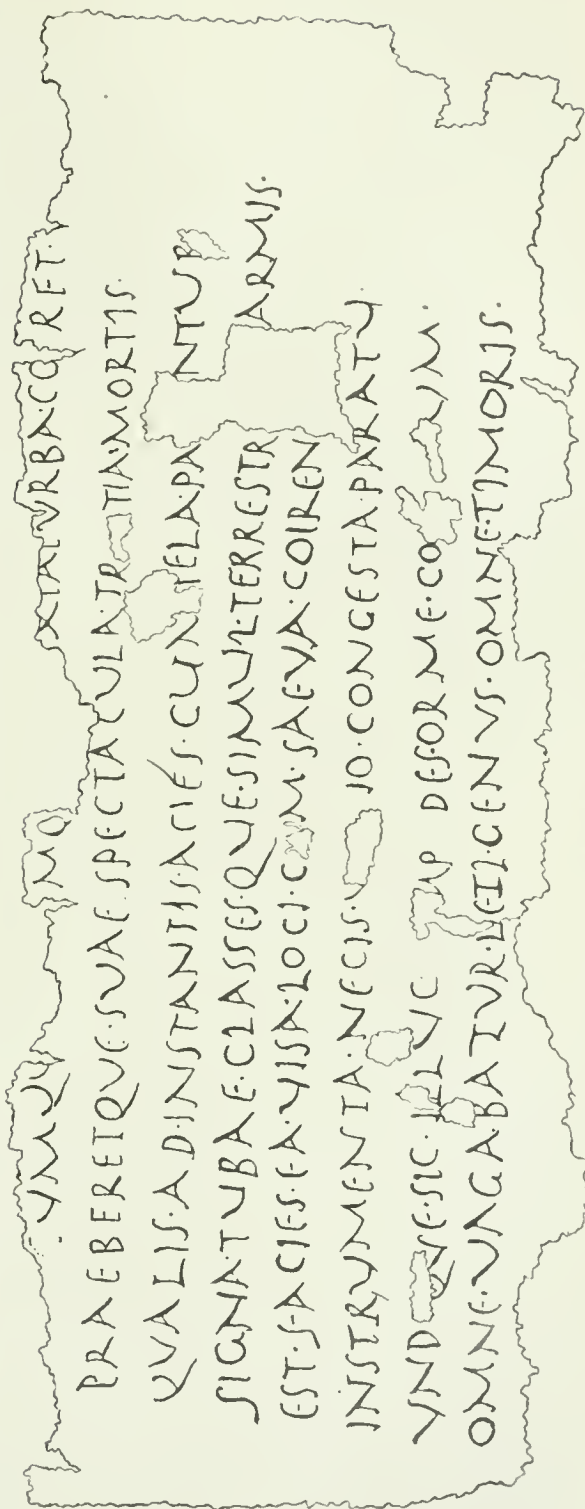 VMQV MO XTATVRBA·CO RET·
PRAEBERETQVE·SVAE·SPECTACVLA·TR TIA·MORTIS·
QVALIS·AD·INSTANTIS·ACIES·CVM TELA·PA NTVR
SIGNA TVBAE·CLASSESQVE·SIMVL·TERRESTR ARMIS·
EST·FACIES·EA·VISA·LOCI·C M·SAEVA·COIREN
INSTRVMENTA·NECIS·V IO·CONGESTA·PARATV
VND QVE·SIC·ILLVC MP DEFORME·CO VM·
OMNE·VAGABATVR·LETI·GENVS·OMNE·TIMORIS·